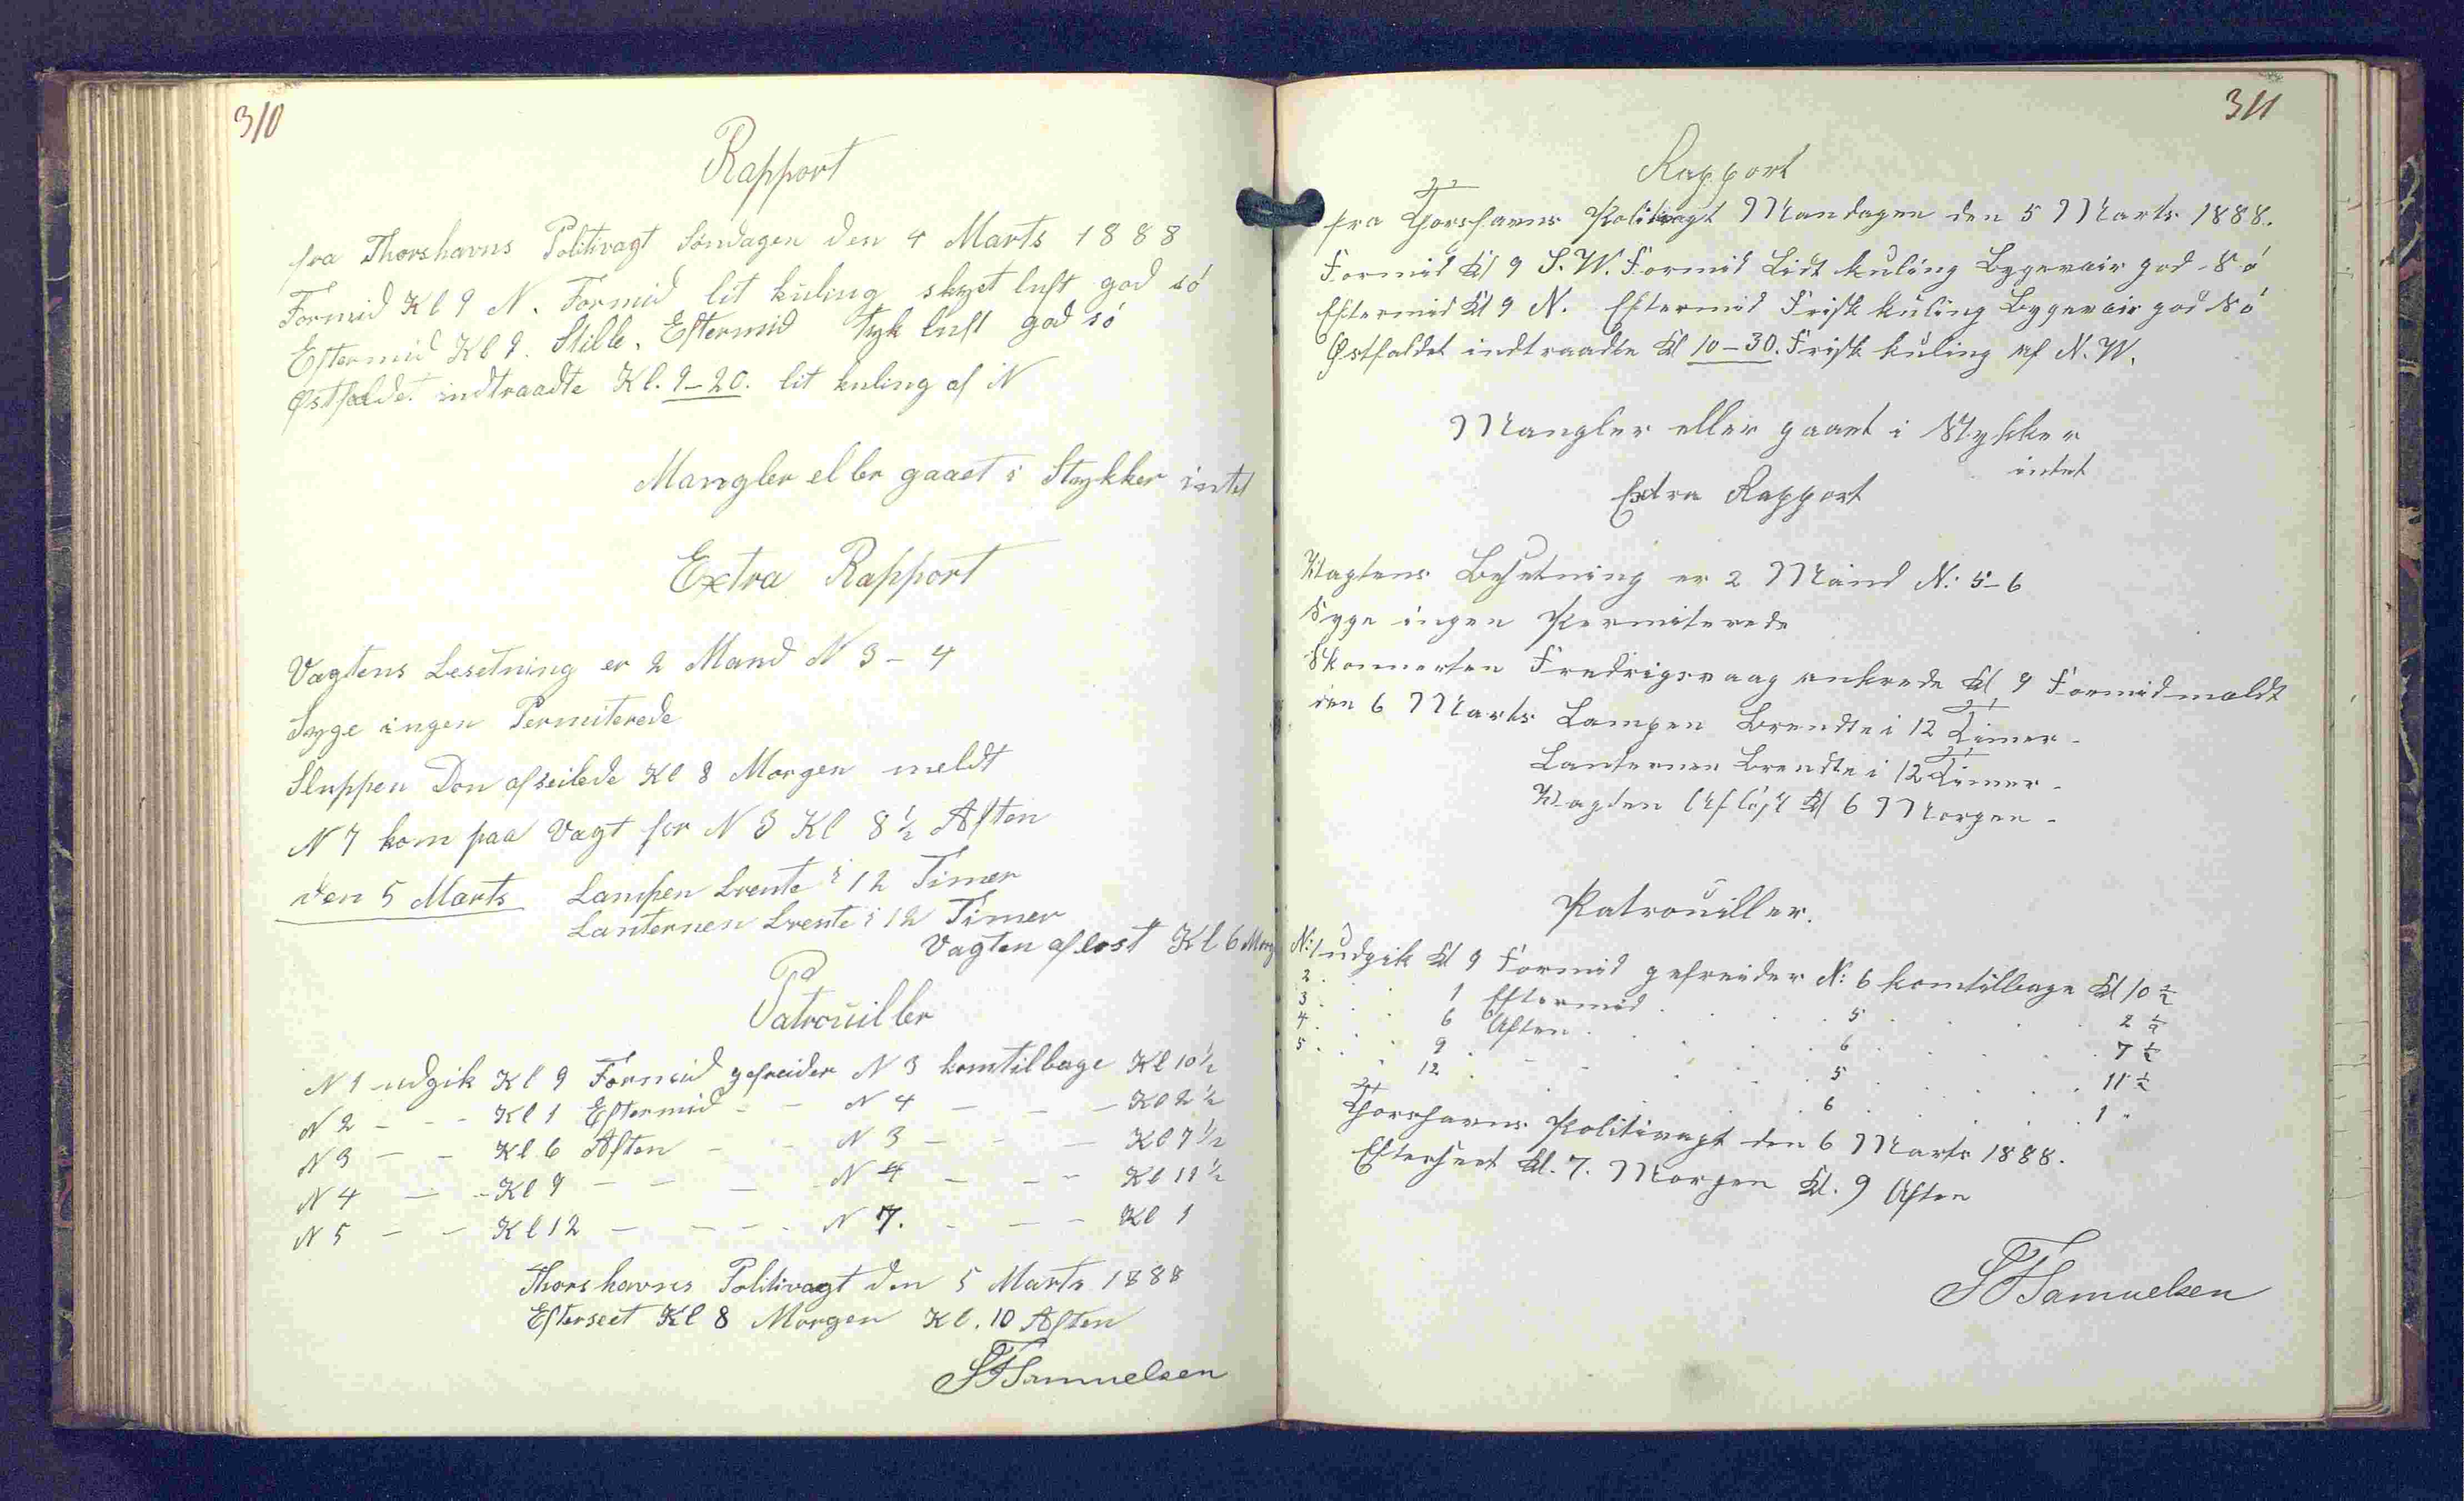 310
Rapport
fra Thorshavns Politivagt Søndagen den 4 Marts 1888
Formid Kl 9 N. Formid lit kuling skyet luft god só
Eftermid Kl 9. Stille. Eftermid tyk luft god só
Østfaldet indtraadte Kl. 9-20. lit kuling af N
Mangler eller gaaet i Stykker intet
Extra Rapport
Vagtens Besetning er 2 Mand N 3 - 4
Syge ingen Permiterede
Sluppen Don afseilede Kl 8 Morgen meldt
N 7 kom paa Vagt for N 3 Kl 8 ½ Aften
den 5 Marts Lampen brente i 12 Timer
Lanternen brente i 12 Timer
Vagten aflost Kl 6 Morg
Patrouiller
N 1 udgik Kl 9 Formid gefreider N 3 komtilbage Kl 10 ½
N 2 - - Kl 1 Eftermid - - N 4 - - - Kl 2 ½
N 3 - - Kl 6 Aften - - N 3 - - - Kl 7 ½
N 4 - - Kl 9 - - - - N 4 - - - Kl 11 ½
N 5 - - Kl 12 - - - - N 7. - - - Kl 1
Thorshavns Politivagt den 5 Marts 1888
Efterseet Kl 8 Morgen Kl. 10 Aften
Samuelsen
311
Rapport
fra Thorshavns Politivagt Mandagen den 5 Marts 1888.
Formid Kl 9 S.W. Formid Lidt kuling Bygevair god Só
Eftermid Kl 9 N. Eftermid Frisk kuling Bygevair god Só
Østfaldet indtraadte Kl 10-30. Frisk kuling af N.W.
Mangler eller gaaet i Stykker
intet
Extra Rapport
Vagtens Besetning er 2 Mand N: 5-6
Syge ingen Permiterede
Skonnerten Fredrigsvaag ankrede Kl 9 Formid mældt
den 6 Marts Lampen Brendte i 12 Timer -
Lanternen Brendte i 12 Timer -
Vagten Aflöst Kl 6 Morgen -
Patrouiller.
N: 1 udgik Kl 9 Formid gefreider N: 6 komtilbage Kl 10 ½
2 . . . 1 Eftermid . . . 5 . . . 2 ½
3 . . . 6 Aften . . . 6 . . . 7 ½
4 . . . 9 . . . 5 . . . 11 ½
5 . . . 12 . . . 6 . . . 1 "
Thorshavns Politivagt den 6 Marts 1888.
Efterseet Kl. 7. Morgen Kl. 9 Aften
Samuelsen